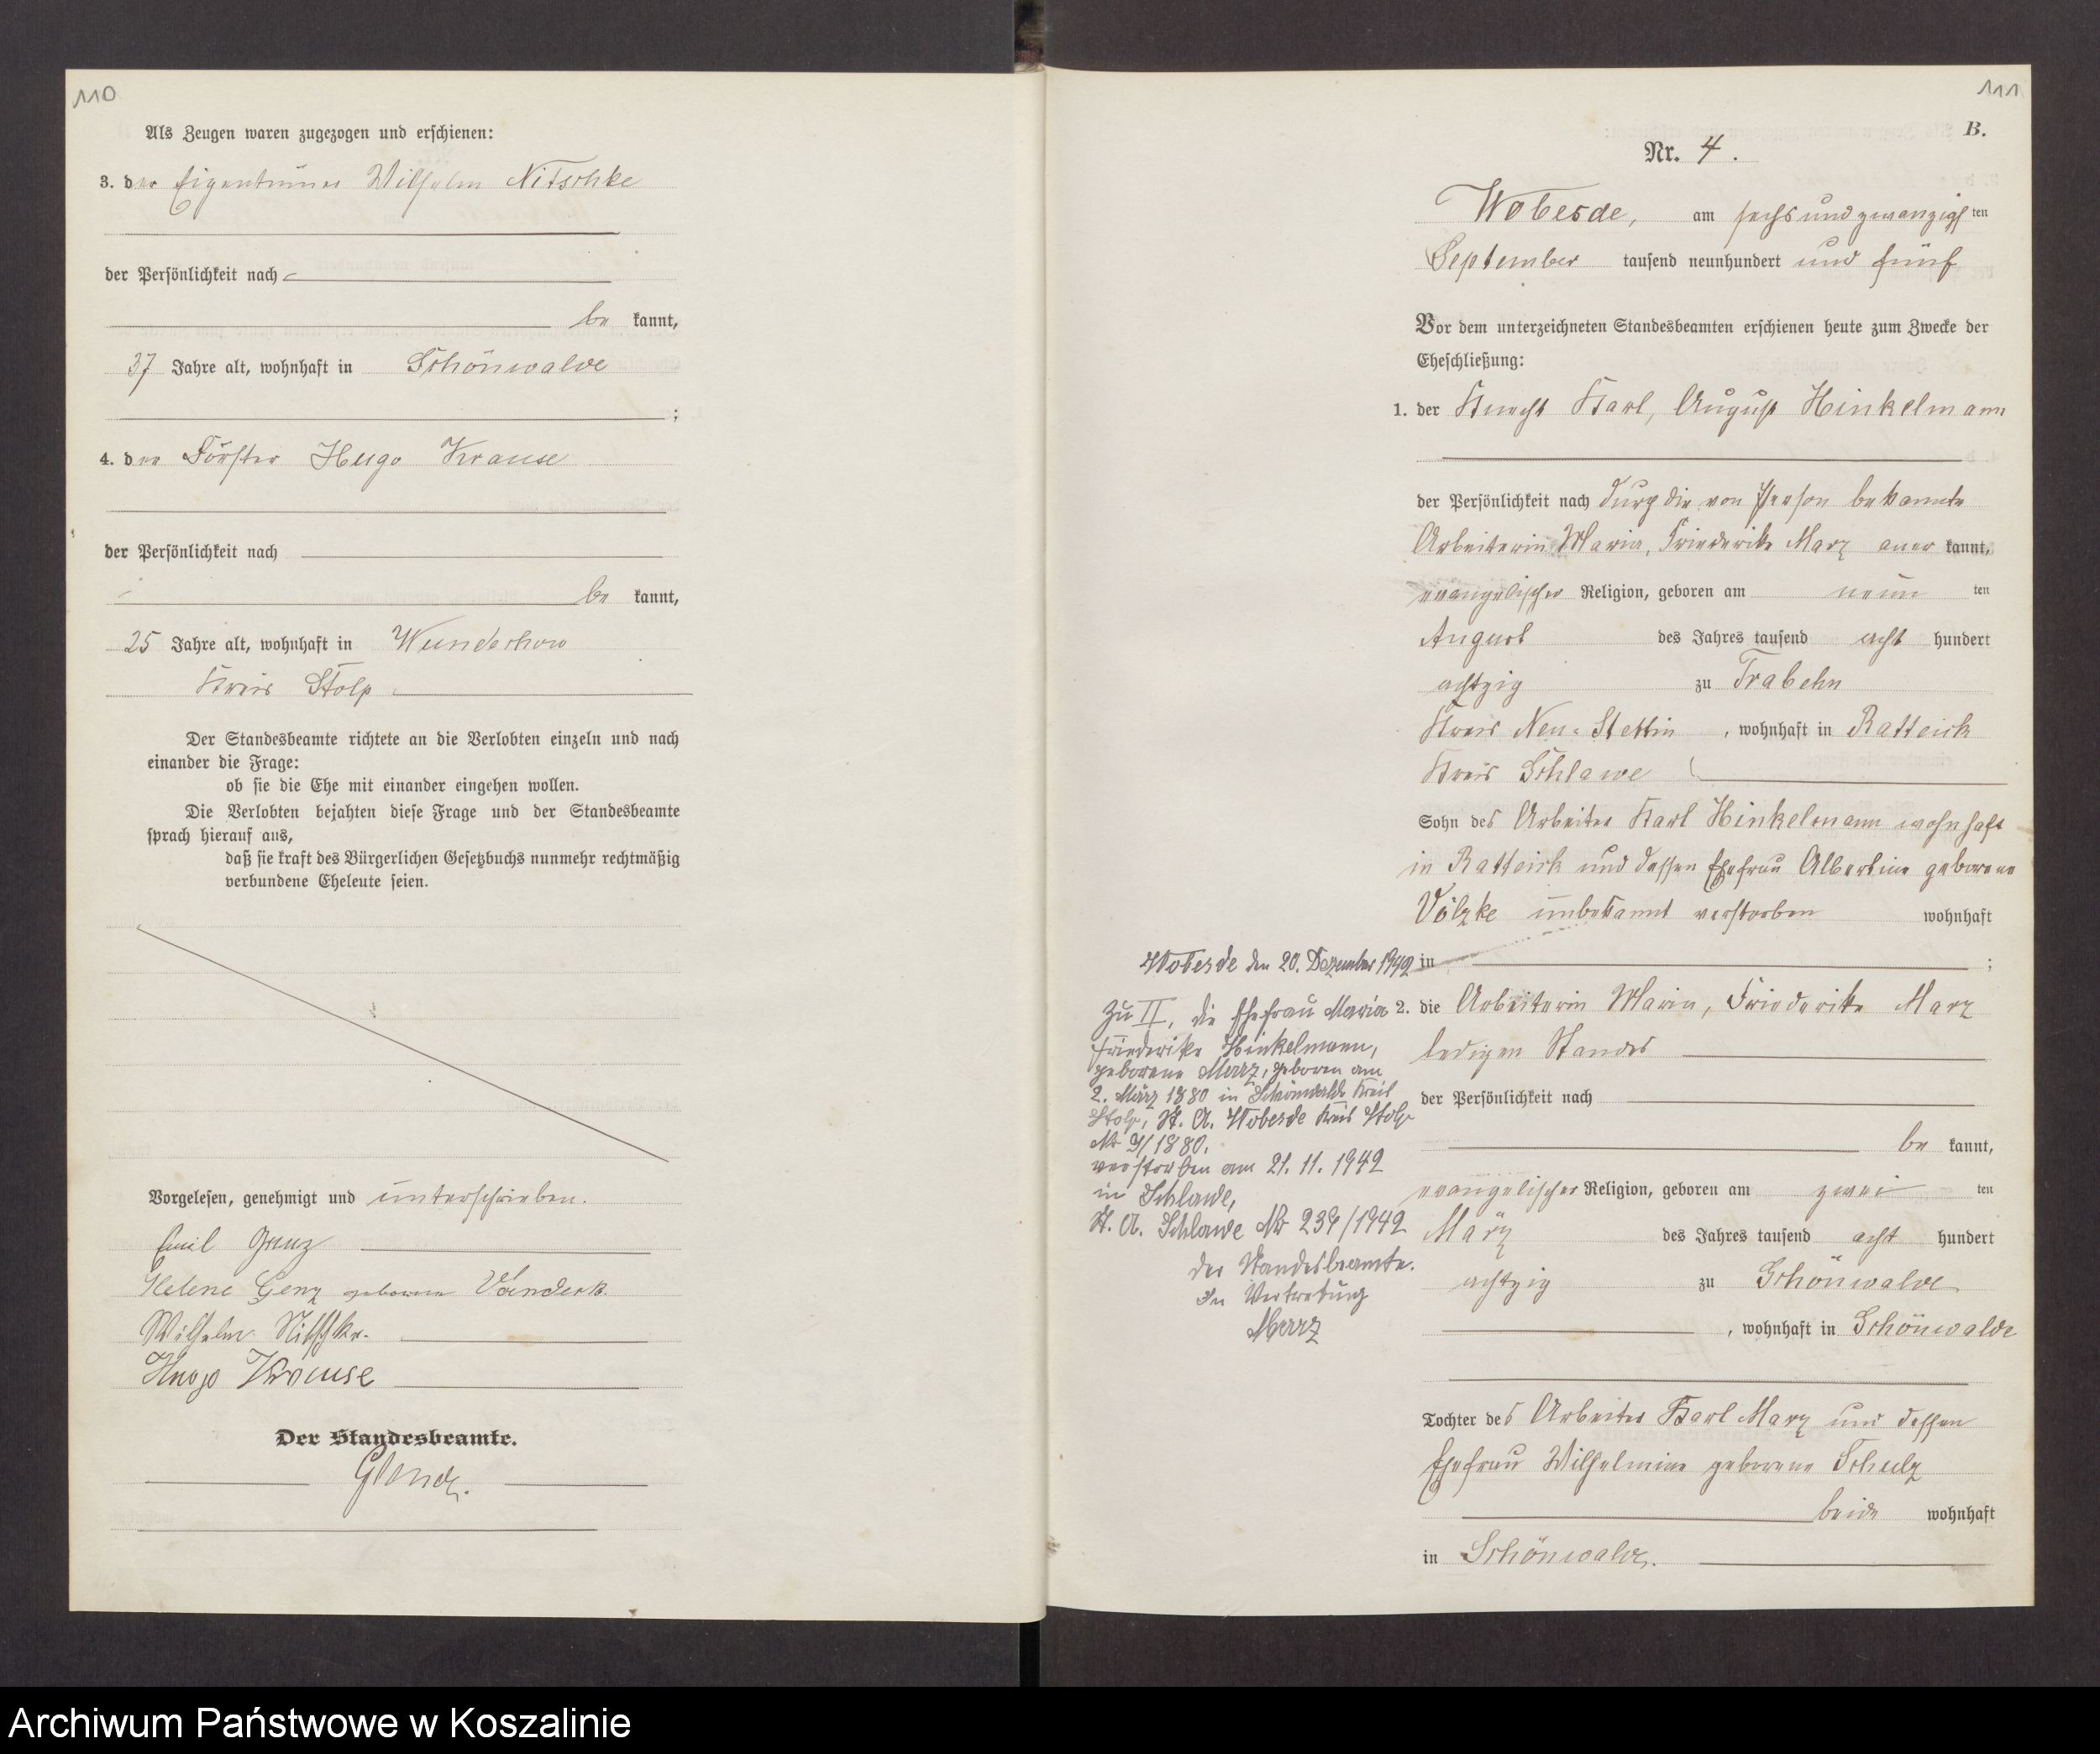 110
Als Zeugen waren zugezogen und erschienen:
3. der Eigentümer Wilhelm Nitschke
der Persönlichkeit nach
be kannt,
37 Jahre alt, wohnhaft in Schönwalde
;
4. der Förster Hugo Krause
der Persönlichkeit nach
be kannt,
25 Jahre alt, wohnhaft in Wundichow
Kreis Stolp
Der Standesbeamte richtete an die Verlobten einzeln und nach
einander die Frage:
ob sie die Ehe mit einander eingehen wollen.
Die Verlobten bejahten diese Frage und der Standesbeamte
sprach hierauf aus,
daß sie kraft des Bürgerlichen Gesetzbuchs nunmehr rechtmäßig
verbundene Eheleute seien.
Vorgelesen, genehmigt und unterschrieben.
Emil Genz
Helene Genz geborene
Wilhelm Nitschke.
Hugo Krause
Der Standesbeamte.
111
B.
Nr. 4.
Wobesde, am sechsundzwanzigsten
September tausend neunhundert und fünf
Vor dem unterzeichneten Standesbeamten erschienen heute zum Zwecke der
Eheschließung:
1. der Knecht Karl, August Hinkelmann
der Persönlichkeit nach durch die von Person bekannte
Arbeiterin Maria, Friederike Marz aner kannt,
evangelischer Religion, geboren am neun ten
August des Jahres tausend acht hundert
achtzig zu Trabehn
Kreis Neu-Stettin, wohnhaft in Ratteick
Kreis Schlawe
Sohn des Arbeiter Karl Hinkelmann wohnhaft
in Ratteick und dessen Ehefrau Albertine geborene
Völzke unbekannt verstorben wohnhaft
in ;
2. die Arbeiterin Maria, Friederike Marz
ledigen Standes
der Persönlichkeit nach
be kannt,
evangelischer Religion, geboren am zwei ten
März des Jahres tausend acht hundert
achtzig zu Schönwalde
, wohnhaft in Schönwalde
Tochter des Arbeiter Karl Marz und dessen
Ehefrau Wilhelmine geborene Schulz
beide wohnhaft
in Schönwalde.
Wobesde den 20. Dezember 1942
Zu II, die Ehefrau Maria
Friederike Hinkelmann,
geborene Marz, geboren am
2. März 1880 in Schönwalde Kreis
Stolp, St. A. Wobesde Kreis Stolp
Nr 9/1880.
verstorben am 21. 11. 1942
in Schlawe,
St. A. Schlawe Nr 239/1942
Der Standesbeamte.
In Vertretung
Marz
Archiwum Państwowe w Koszalinie